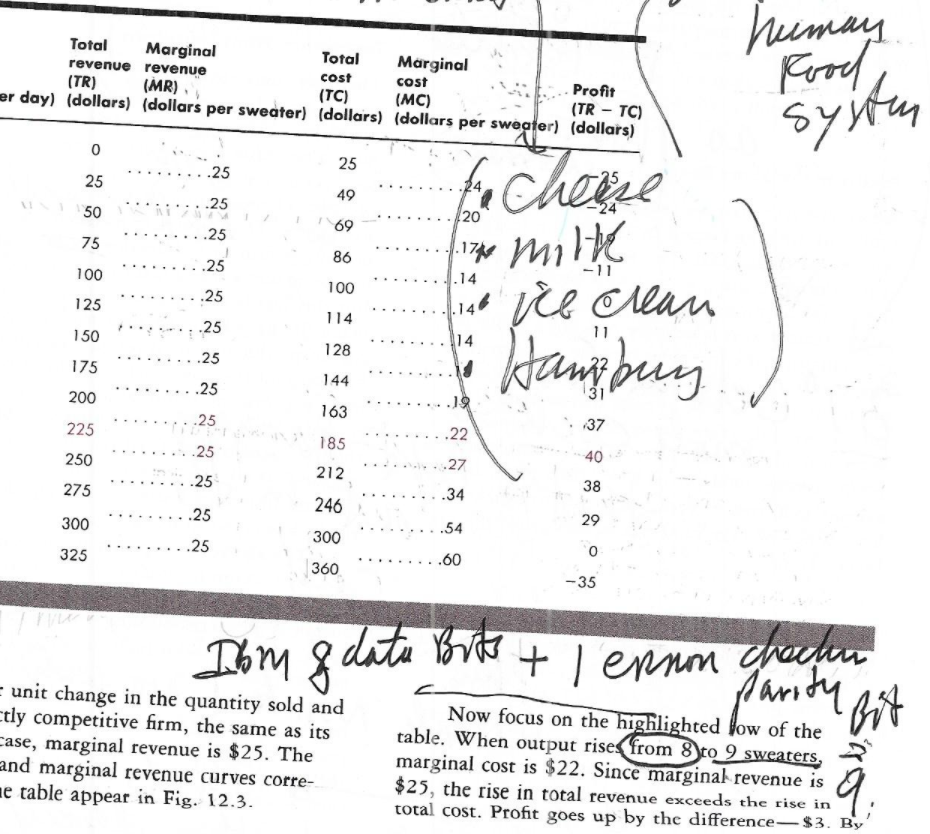 human
Food
System
Total Marginal Total Marginal
revenue revenue cost cost Profit
(TR) (MR) (TC) (MC) (TR − TC)
er day) (dollars) (dollars per sweater) (dollars) (dollars per sweater) (dollars)
0 25 −25
.........25 .........24
25 49 −24
.........25 .........20
50 69
.........25 .........17
75 86 −11
.........25 .........14
100 100 0
.........25 .........14
125 114 11
.........25 .........14
150 128
.........25
175 144 31
.........25 .........19
200 163 37
.........25 .........22
225 185 40
.........25 .........27
250 212 38
.........25 .........34
275 246 29
.........25 .........54
300 300 0
.........25 .........60
325 360 −35
cheese
milk
ice cream
Hamburg
Ibm 8 data Bits + 1 error checkin
parity Bit
9
unit change in the quantity sold and
ctly competitive firm, the same as its
case, marginal revenue is $25. The
and marginal revenue curves corre-
e table appear in Fig. 12.3.
Now focus on the highlighted row of the
table. When output rises from 8 to 9 sweaters,
marginal cost is $22. Since marginal revenue is
$25, the rise in total revenue exceeds the rise in
total cost. Profit goes up by the difference—$3. By